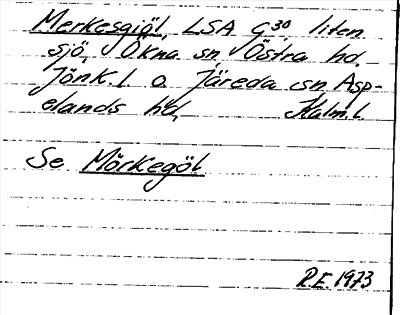 Merkesgiöl, LSA G³⁰ liten
sjö, Ökna sn Östra hd.
Jönk.l. o. Järeda sn Asp-
elands hd, Kalm.l.
Se Mörkegöl
R.E. 1973